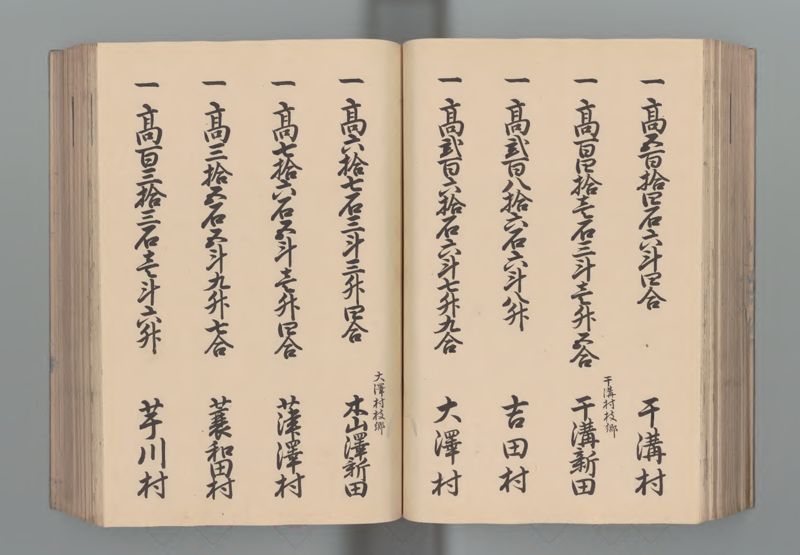 一 高五百拾四石六斗四合 干溝村
一 高百四拾壱石三斗壱升五合 干溝村枝郷 干溝新田
一 高弐百八拾六石六斗八升 吉田村
一 高弐百六拾石六斗七升九合 大澤村
一 高六拾七石三斗三升四合 大澤村枝郷 木山澤新田
一 高七拾六石五斗壱升四合 蓬澤村
一 高三拾五石五斗九升七合 蓑和田村
一 高百三拾三石壱斗六升 芋川村